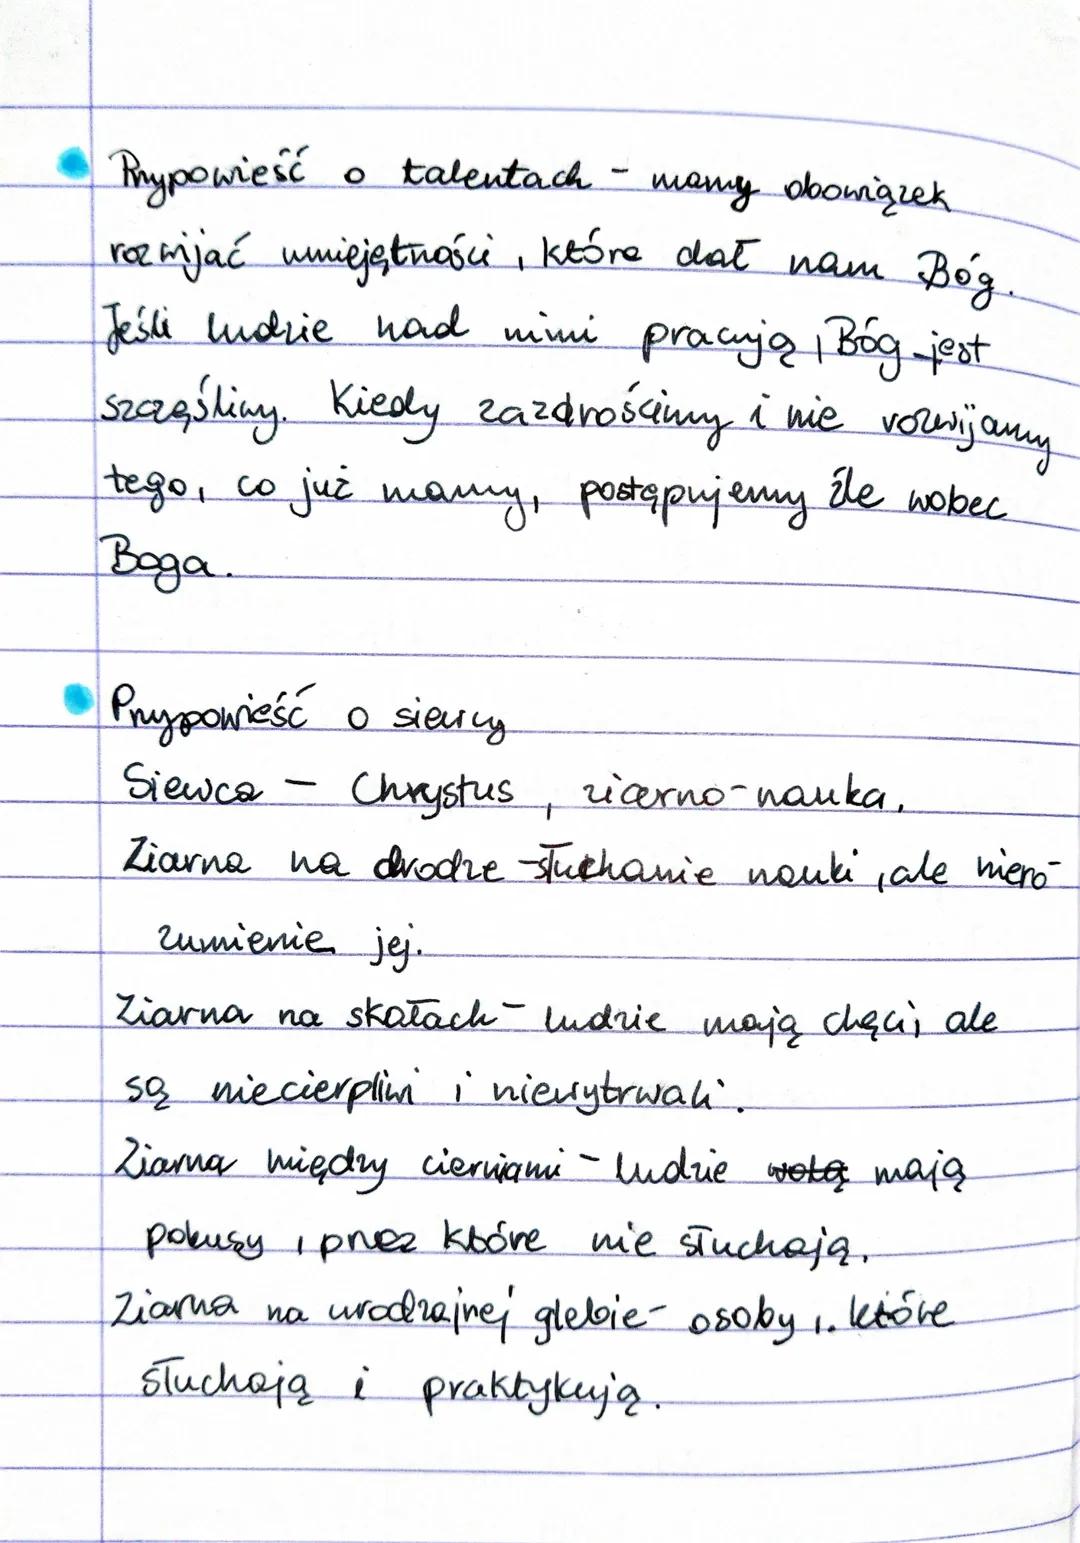 Przypowieść o talentach - mamy obowiązek
rozwijać umiejętności, które dał nam Bóg.
Jeśli ludzie nad nimi pracują, Bóg jest
szczęśliwy. Kiedy zazdrościmy i nie rozwijamy
tego, co już mamy, postępujemy źle wobec
Boga.
Przypowieść o siewcy
Siewca - Chrystus, ziarno-nauka.
Ziarna na drodze -słuchanie nauki, ale niero-
zumienie jej.
Ziarna na skałach- ludzie mają chęci, ale
są niecierpliwi i niewytrwali.
Ziarna między cierniami - ludzie wolą mają
pokusy, przez które nie słuchają.
Ziarna na urodzajnej glebie- osoby, które
słuchają i praktykują.